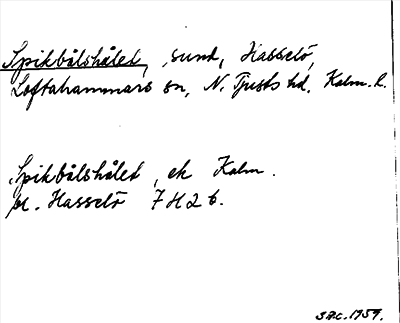 Spikbålshålet, sund, Hasselö,
Loftahammars sn, N. Tjusts hd. Kalm. l.
Spikbålshålet, ek Kalm.
bl. Hasselö 7H2b.
1959.